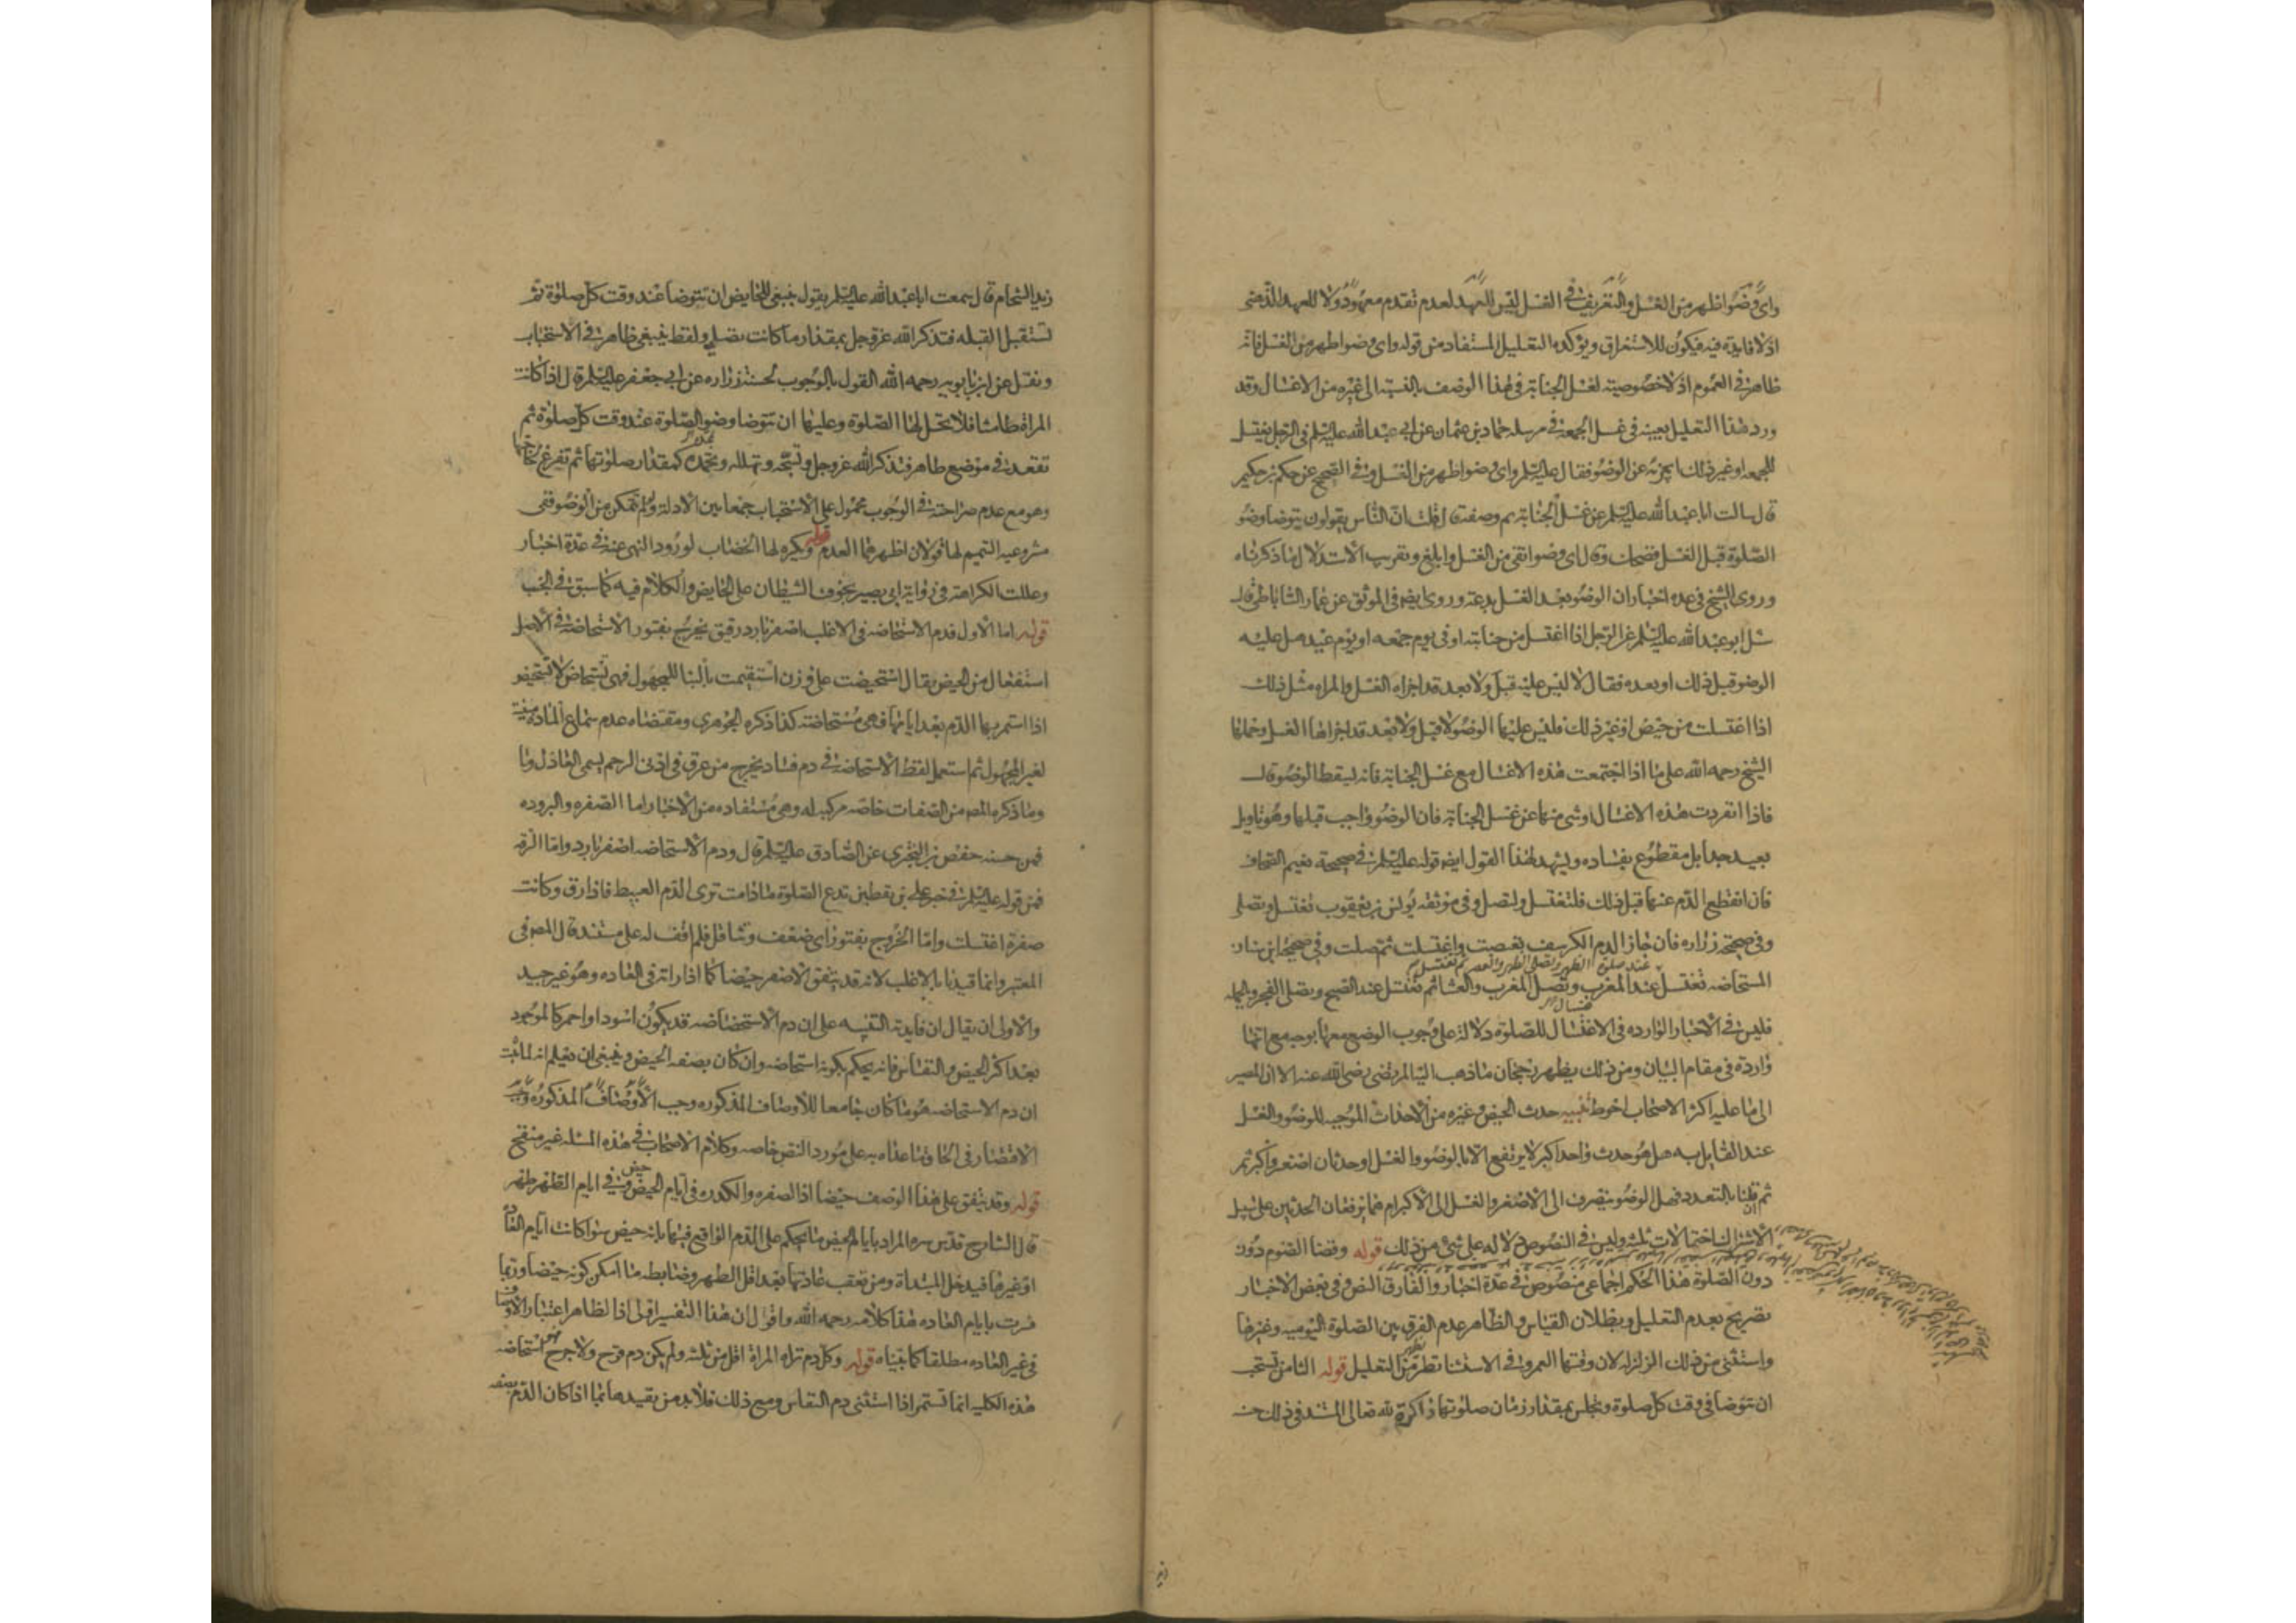 وای وضوء اطهر من الغسل والتعریف فی الغسل لیس للعهد لعدم تقدم معهود ولا للعهد الذهنی
اذ لا فایدة فیه فیکون للاستغراق ویؤکده التعلیل المستفاد من قوله وای وضوء اطهر من الغسل فانه
ظاهر فی العموم اذ لا خصوصیة لغسل الجنابة فی هذا الوصف بالنسبة الی غیره من الاغسال وقد
ورد هذا التعلیل بعینه فی غسل الجمعة فی مرسلة حماد بن عثمان عن ابی عبد الله علیه السلم فی الرجل یغتسل
للجمعه او غیر ذلک ایجزیه عن الوضوء فقال علیه السلم وای وضوء اطهر من الغسل وفی الصحیح عن حکم بن حکیم
قال سالت ابا عبد الله علیه السلم عن غسل الجنابة ثم وصفه قال قلت ان الناس یقولون یتوضا وضوء
الصلوة قبل الغسل فضحک وقال ای وضوء انقی من الغسل وابلغ وتقریب الاستدلال ما ذکرناه
وروی الشیخ فی عدة اخبار ان الوضوء بعد الغسل بدعة وروی ایضا فی الموثق عن عمار الساباطی قال
سئل ابو عبد الله علیه السلم عن الرجل اذا اغتسل من جنابته او فی یوم جمعه او یوم عید هل علیه
الوضوء قبل ذلک او بعده فقال لا لیس علیه قبل ولا بعد قد اجزاه الغسل والمراه مثل ذلک
اذا اغتسلت من حیض او غیر ذلک فلیس علیها الوضوء لا قبل ولا بعد قد اجزاها الغسل وحملها
الشیخ رحمه الله علی ما اذا اجتمعت هذه الاغسال مع غسل الجنابة فانه یسقط الوضوء قال
فاذا انفردت هذه الاغسال او شی منها عن غسل الجنابة فان الوضوء واجب قبلها وهو تاویل
بعید جدا بل مقطوع بفساده ویشهد لهذا القول ایضا قوله علیه السلم فی صحیحة نعیم الصحاف
فان انقطع الدم عنها قبل ذلک فلتغتسل ولتصل وفی موثقة یونس بن یعقوب تغتسل وتصلی
وفی صحیحة زراره فان جاز الدم الکرسف تعصبت واغتسلت ثم صلت وفی صحیحة ابن سنان
المستحاضه تغتسل عند صلوة الظهر وتصلی الظهر والعصر ثم تغتسل عند المغرب وتصلی المغرب والعشا ثم تغتسل عند الصبح وتصلی الفجر وبالجمله
فلیس فی الاخبار الوارده فی الاغتسال للصلوة دلالة علی وجوب الوضوء معها بوجه مع انها
واردة فی مقام البیان ومن ذلک یظهر رجحان ما ذهب الیه المرتضی رضی الله عنه الا ان المصیر
الی ما علیه اکثر الاصحاب احوط تنبیه حدث الحیض وغیره من الاحداث الموجبه للوضوء والغسل
عند القایل به هل هو حدث واحد اکبر لا یرتفع الا بالوضوء والغسل او حدثان اصغر واکبر ثم
ثم ان قلنا بالتعدد فهل الوضوء ینصرف الی الاصغر والغسل الی الاکبر ام هما یرفعان الحدثین علی سبیل
الاشتراک احتمالات ثلثه ولیس فی النصوص دلاله علی شی من ذلک قوله وقضا الصوم دون
دون الصلوة هذا الحکم اجماعی منصوص فی عدة اخبار والفارق النص وفی بعض الاخبار
تصریح بعدم التعلیل وبطلان القیاس والظاهر عدم الفرق بین الصلوة الیومیه وغیرها
واستثنی من ذلک الزلزله لان وقتها العمر وفی الاستثنا نظر یظهر من التعلیل قوله الثامن تستحب
ان تتوضا فی وقت کل صلوة وتجلس بمقدار زمان صلوتها ذاکرة لله تعالی المستند فی ذلک حسنه
زید الشحام قال سمعت ابا عبد الله علیه السلم یقول ینبغی للحایض ان تتوضا عند وقت کل صلوة ثم
تستقبل القبله فتذکر الله عز وجل بمقدار ما کانت تصلی ولفظ ینبغی ظاهر فی الاستحباب
ونقل عن ابن بابویه رحمه الله القول بالوجوب لحسنة زراره عن ابی جعفر علیه السلم قال اذا کانت
المراة طامثا فلا تحل لها الصلوة وعلیها ان تتوضا وضوء الصلوة عند وقت کل صلوة ثم
تقعد فی موضع طاهر فتذکر الله عز وجل وتسبحه وتهلله وتحمده کمقدار صلوتها ثم تفرغ لحاجتها
وهو مع عدم صراحته فی الوجوب محمول علی الاستحباب جمعا بین الادلة ولو لم تتمکن من الوضوء ففی
مشروعیه التیمم لها قولان اظهرهما العدم قوله ویکره لها الخضاب لورود النهی عنه فی عدة اخبار
وعللت الکراهة فی روایة ابی بصیر بخوف الشیطان علی الحایض والکلام فیه کما سبق فی الجنب
قوله اما الاول فدم الاستحاضه فی الاغلب اصفر بارد رقیق یخرج بفتور الاستحاضة فی الاصل
استفعال من الحیض یقال استحیضت علی وزن استقیمت بالبنا للمجهول فهی تستحاض لا تستحیض
اذا استمر بها الدم بعد ایامها فهی مستحاضة کذا ذکره الجوهری ومقتضاه عدم سماع المادة مبنیة
لغیر المجهول ثم استعمل لفظ الاستحاضة فی دم فساد یخرج من عرق فی ادنی الرحم یسمی العاذل وما
وما ذکره المص من الصفات خاصة مرکبه له وهی مستفاده من الاخبار اما الصفره والبروده
فمن حسنه حفص بن البختری عن الصادق علیه السلم قال ودم الاستحاضه اصفر بارد واما الرقه
فمن قوله علیه السلم فی خبر علی بن یقطین تدع الصلوة ما دامت تری الدم العبیط فاذا رق وکانت
صفرة اغتسلت واما الخروج بفتور ای ضعف وتثاقل فلم اقف له علی مستند قال المص فی
المعتبر وانما قیدنا بالاغلب لانه قد یتفق الاصفر حیضا کما اذا راته فی العاده وهو غیر جید
والاولی ان یقال ان فایدته التنبیه علی ان دم الاستحضاضه قد یکون اسود او احمر کالموجود
بعد اکثر الحیض والنفاس فانه یحکم بکونه استحاضه وان کان بصفه الحیض وینبغی ان یعلم انه لما ثبت
ان دم الاستحاضه هو ما کان جامعا للاوصاف المذکوره وجب
الاقتصار فی الحاق ما عداه به علی مورد النص خاصه وکلام الاصحاب فی هذه المسئله غیر منقح
قوله وقد یتفق علی هذا الوصف حیضا اذ الصفره والکدره فی ایام الحیض حیض وفی ایام الطهر طهر
قال الشارح قدس سره المراد بایام الحیض ما یحکم علی الدم الواقع فیها بانه حیض سوا کانت ایام العادة
او غیرها فیدخل المبتداة ومن تعقب عادتها بعد اقل الطهر وضابطه ما امکن کونه حیضا وربما
فسرت بایام العاده هذا کلامه رحمه الله واقول ان هذا التفسیر اولی اذ الظاهر اعتبار الاوصاف
فی غیر العاده مطلقا کما بیناه قوله وکل دم تراه المراة اقل من ثلثه ولم یکن دم قرح ولا جرح فهو استحاضه
هذه الکلیه انما تستمر اذا استثنی دم النفاس ومع ذلک فلا بد من تقییدها بما اذا کان الدم بصفه